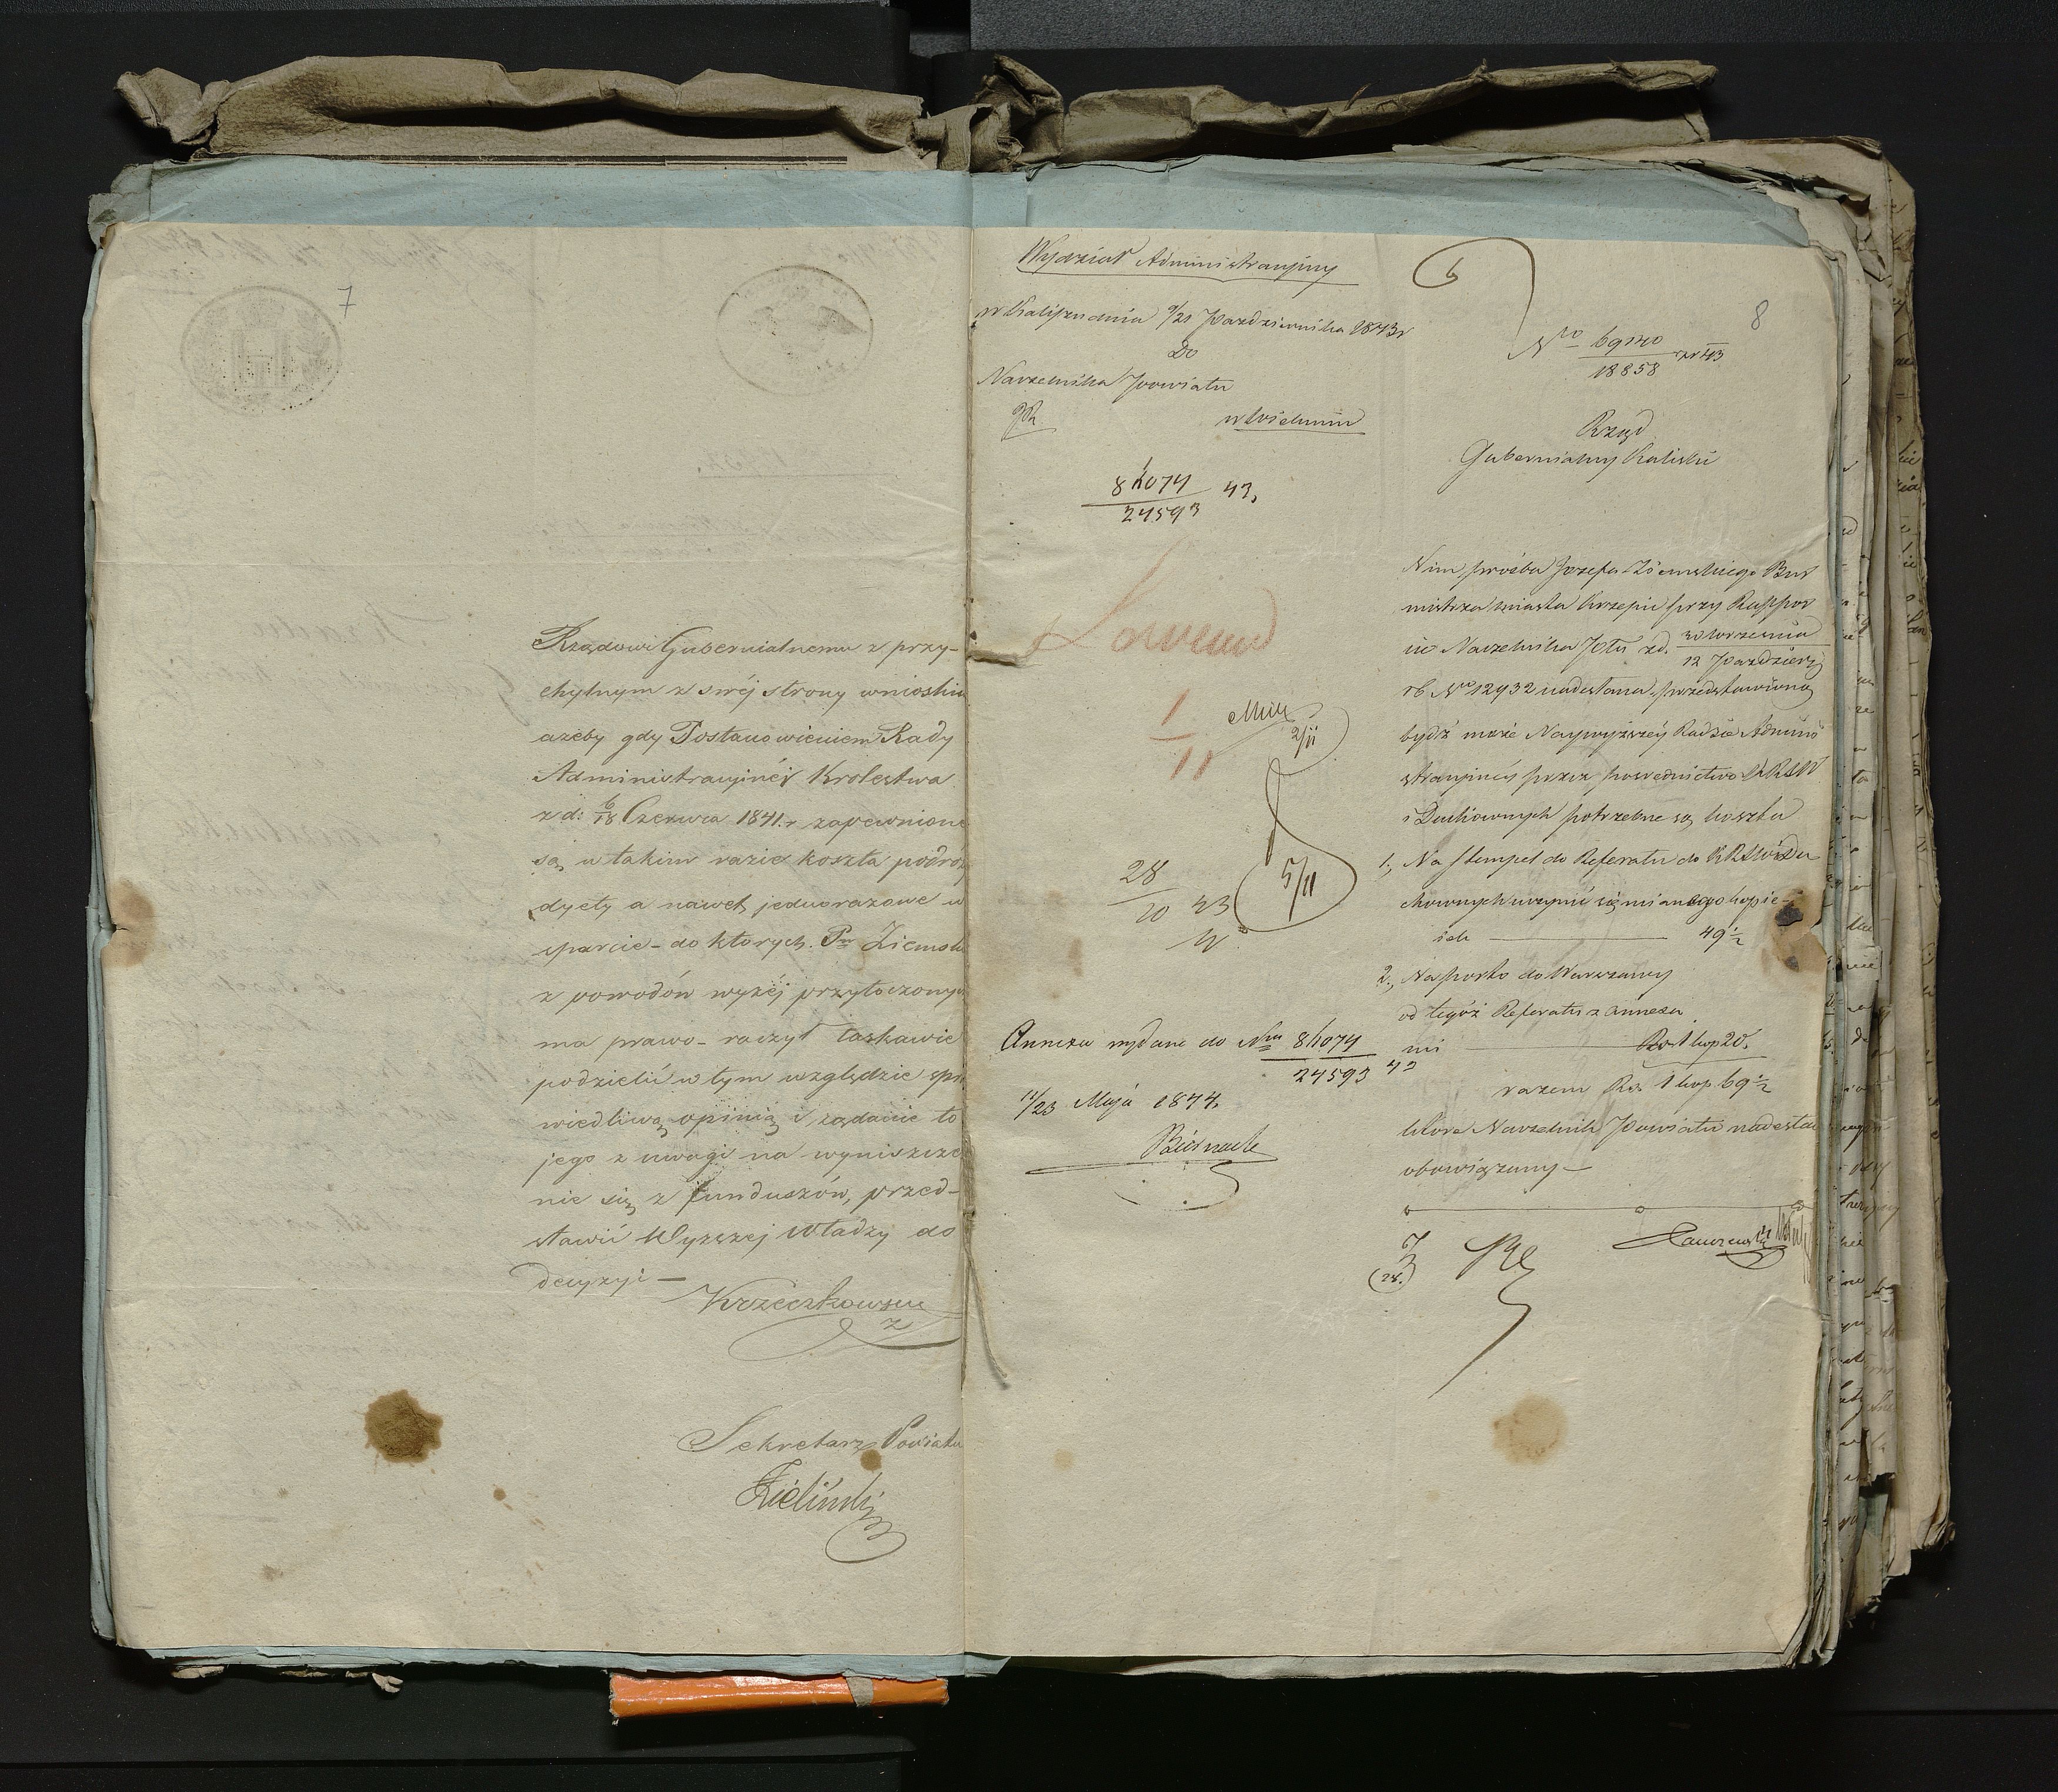 7
Rządowi Gubernialnemu z przy-
chylnym z swéj strony wnioskie
ażeby gdy Postanowieniem Rady
Administracyjnéj Królestwa
z d: 6/18 Czerwca 1841 r zapewnione
są w takim razie koszta podróż
dyety a nawet jednorazowe w
sparcie - do których Pn Ziemsk
z powodów wyżéj przytoczonych
ma prawo - raczył łaskawie
podzielić w tym względzie spra
wiedliwą opinią i żądanie to
jego z uwagi na wyniszcze
nie się z funduszów, przed-
stawić Wyższej Władzy do
decyzyi —
Sekretarz Powiatu
Zieliński
Wydział Administracyjny
w Kaliszu dnia 9/21 Października 1843 r
Do
Naczelnika Powiatu
w Wieluniu
24593 43,
1/11
2/11
5/11
28/10 43
Annexa wydane do Nru
24593 43
11/23 Maja 1844.
8
No 69140/18858 z r 43
Rząd
Gubernialny Kaliski
Nim prośba Józefa Ziemskiego Bur
mistrza miasta Krzepic przy Rappor
cie Naczelnika Ptu z d. 30 Września/12 Paździer
r b No 12932 nadesłana, przedstawioną
bydź może Naywyższéy Radzie Admini
stracyjnéy przez pośrednictwo KRSW
i Duchownych potrzebne są koszta
1, Na stempel do Referatu do KRSW i Du
chownych uczynić się mianego kopie-
iek — 49 1/2
2, Na porto do Warszawy
od tegóż Referatu z annexa
mi — Rs 1 kop 20,
razem Rs 1 kop 69 1/2
które Naczelnik Powiatu nadesłać
obowiązany —